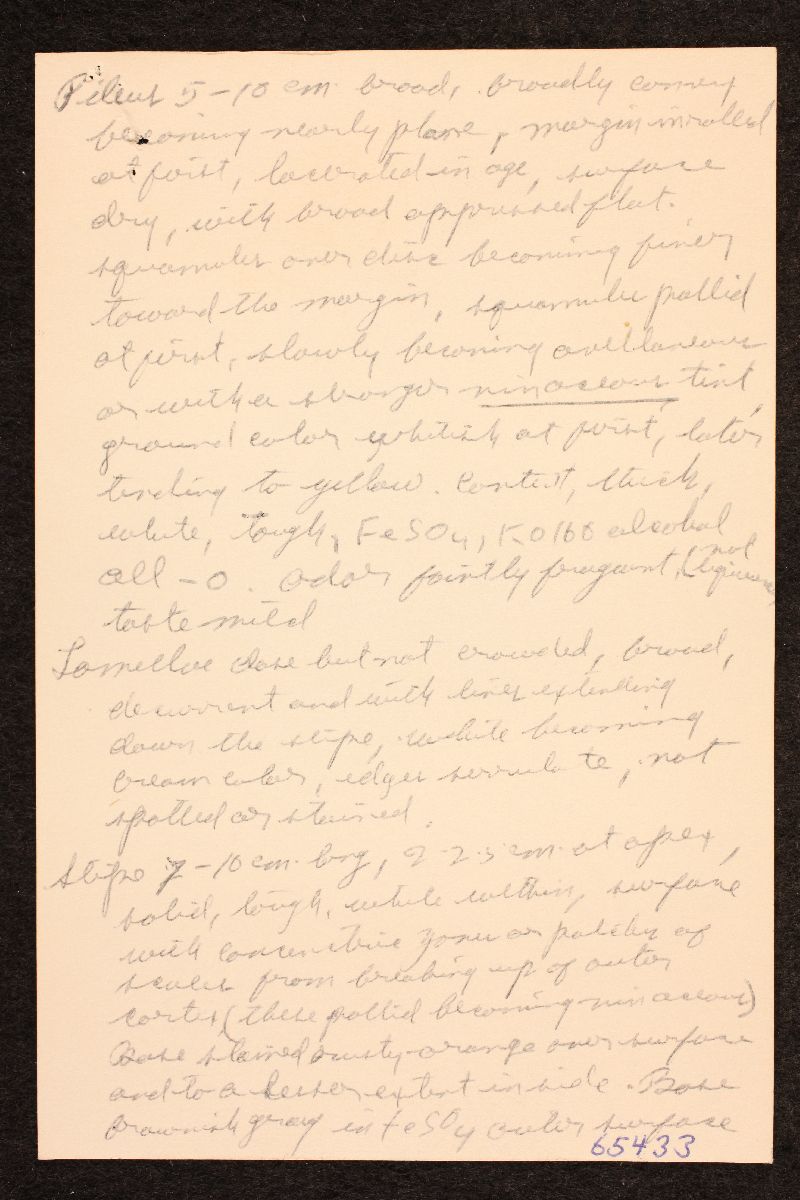 Pileus 5-10 cm broad, broadly convex
becoming nearly plane, margin inrolled
at first, lacerated in age, surface
dry, with broad appressed flat.
squamules over disc becoming finer
toward the margin, squamules pallid
at first, slowly becoming avellaneous
or with a stronger vinaceous tint,
ground color whitish at first, later
tending to yellow. Context, thick,
white, tough, FeSO4, KOH alcohol
all -0. Odor faintly fragrant, (not
taste mild
Lamellae close but not crowded, broad,
decurrent and with lines extending
down the stipe, white becoming
cream color, edges serrulate, not
spotted or stained.
Stipe 7-10 cm long, 2-2.5 cm at apex,
solid, tough, white within, surface
with concentric zones or patches of
scales from breaking up of outer
cortex (these pallid becoming vinaceous)
Base stained rusty-orange over surface
and to a lesser extent inside. Base
brownish gray in FeSO4 outer surface
65433